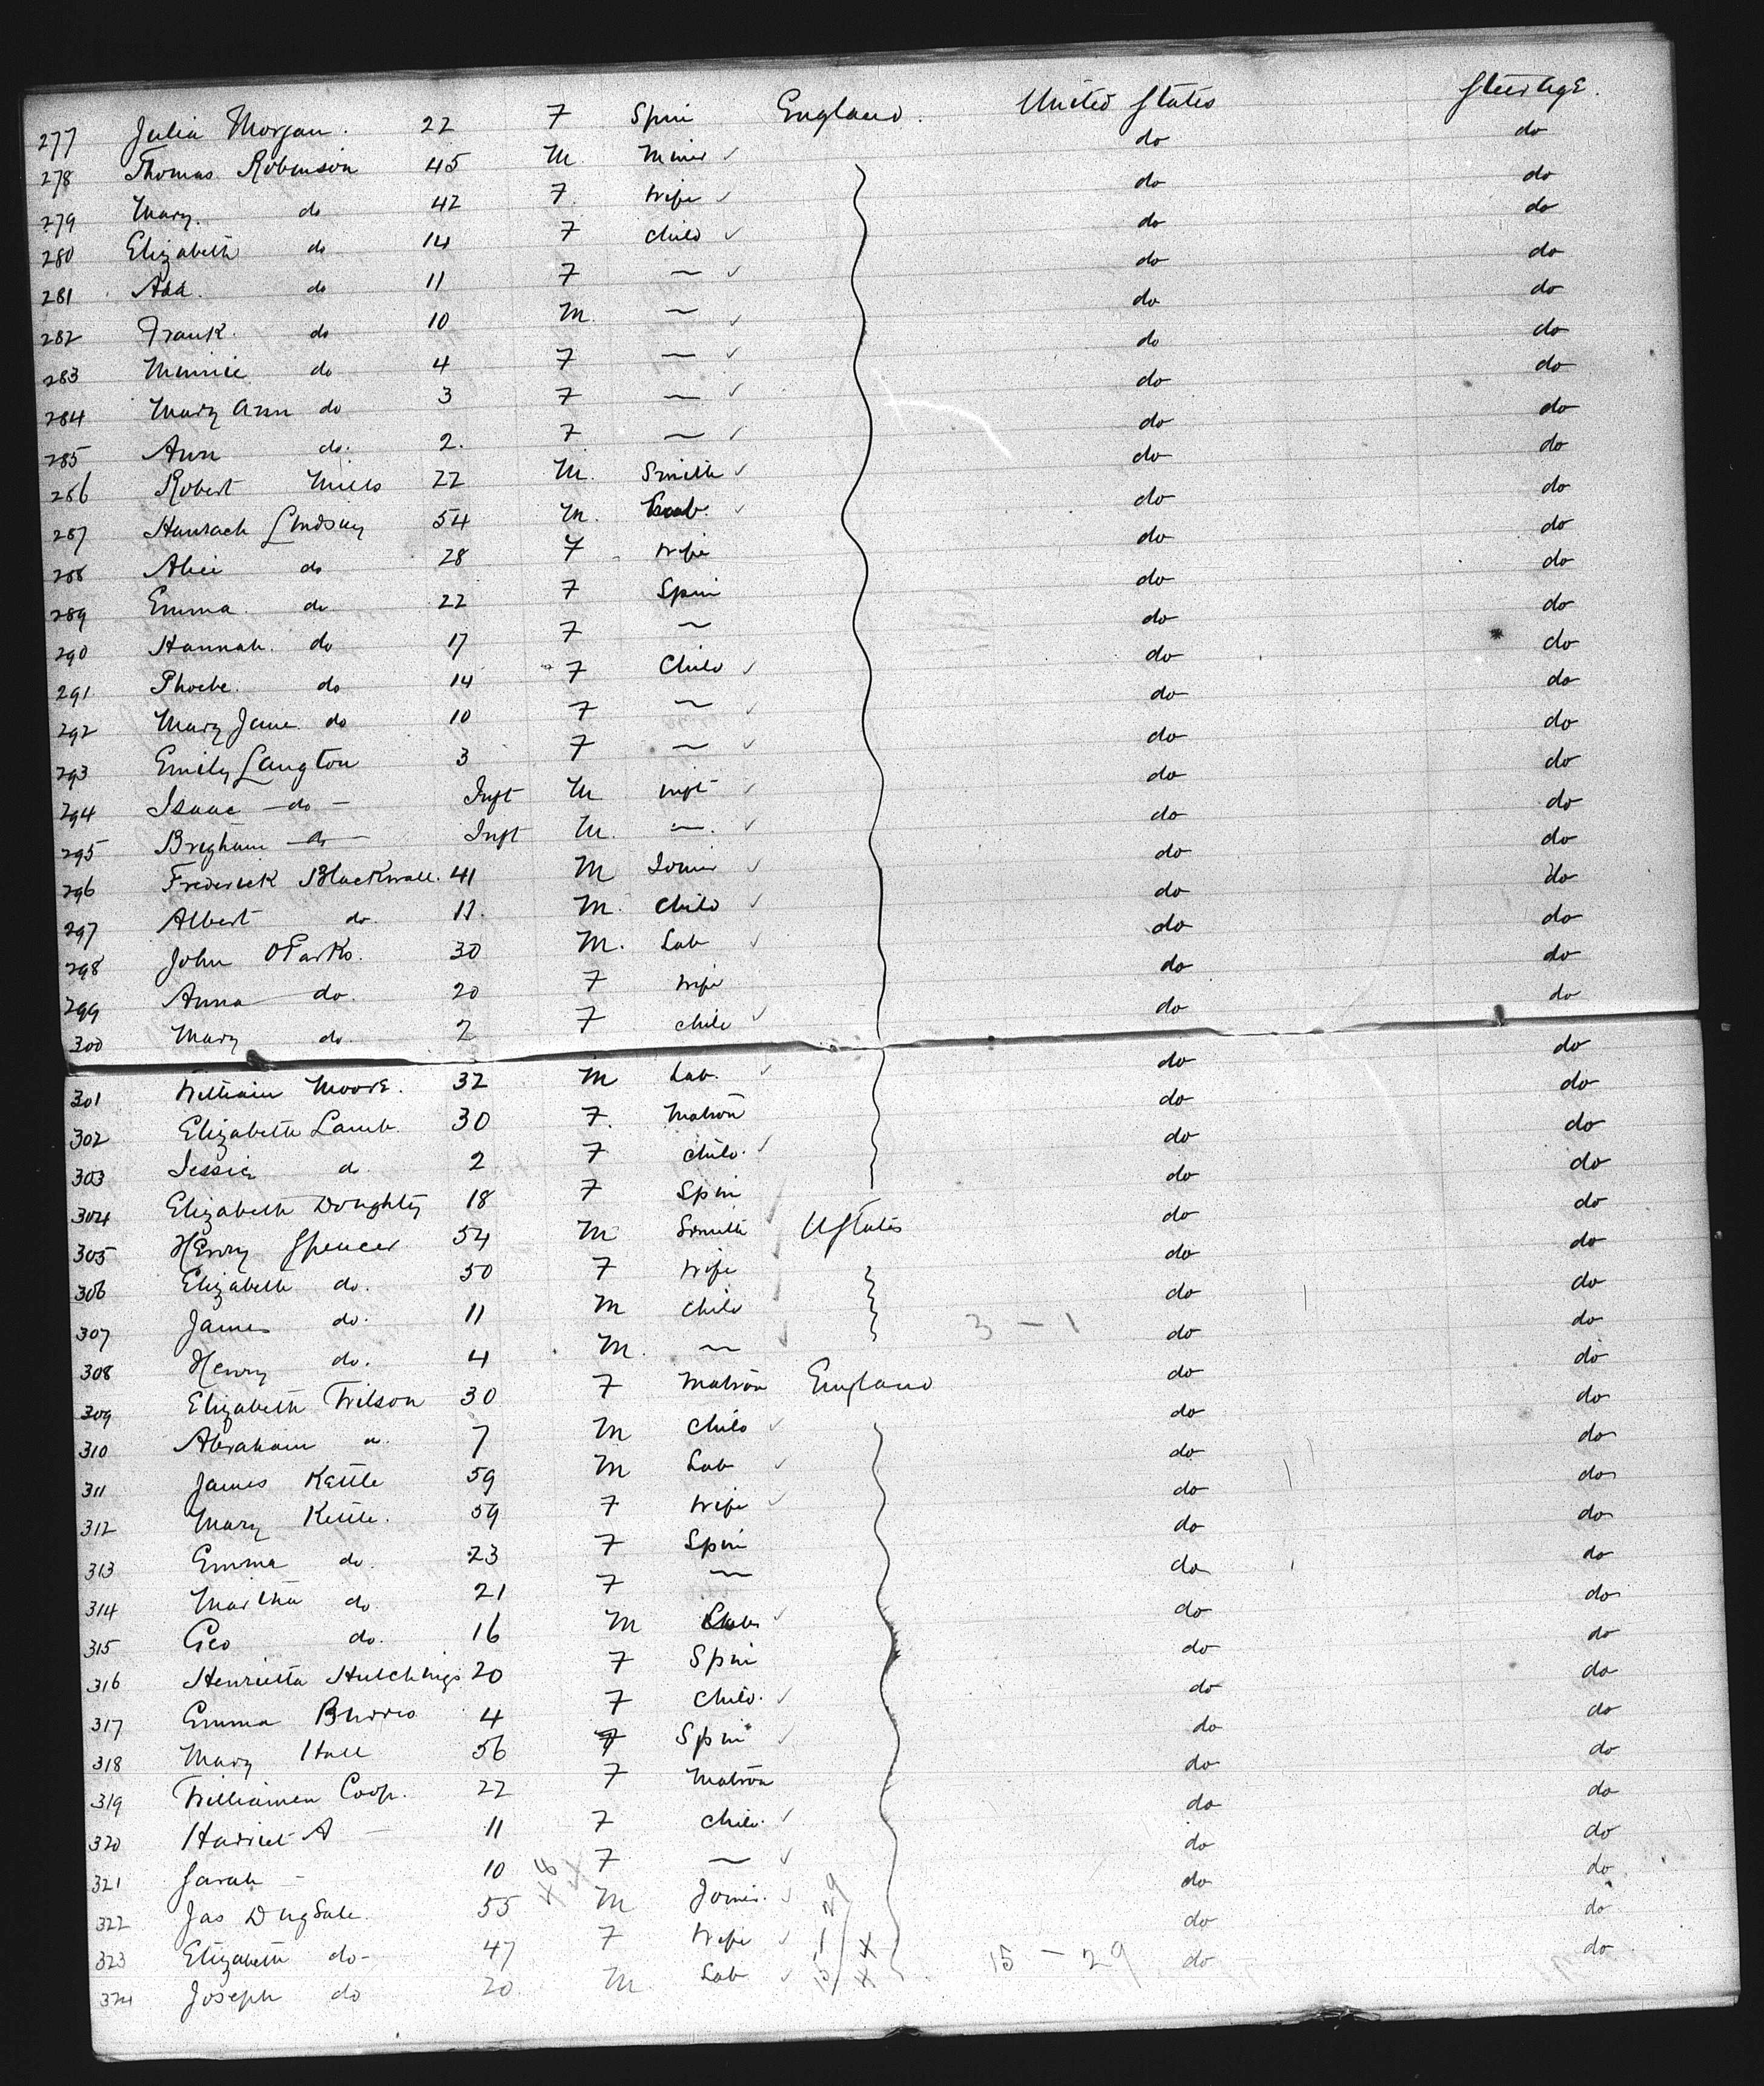 277 Julia Morgan. 22 F Spin England. United States Steerage.
278 Thomas Robinson 45 M. Miner do do
279 Mary. do 42 F. Wife do do
280 Elizabeth do 14 F Child do do
281 Ada. do 11 F — do do
282 Frank. do 10 M. — do do
283 Minnie do 4 F — do do
284 Mary Ann do 3 F — do do
285 Ann do. 2. F — do do
286 Robert Mills 22 M. Smith do do
287 Lindsay 54 M. Lab. do do
288 Alice do 28 F Wife do do
289 Emma. do 22 F Spin do do
290 Hannah. do 17 F — do do
291 Phoebe. do 14 F Child do do
292 Mary Jane do 10 F — do do
293 Emily Langton 3 F — do do
294 Isaac — do — Inft M inft do do
295 Brigham — do — Inft M. —. do do
296 Frederick Blackwall. 41 M Joiner do do
297 Albert do. 11. M. Child do do
298 John Parks. 30 M. Lab do do
299 Anna do. 20 F Wife do do
300 Mary do. 2 F child do do
301 William Moore. 32 M Lab. do do
302 Elizabeth Lamb. 30 F. Matron do do
303 Jessie do 2 F child. do do
304 Elizabeth Doughty 18 F Spin do do
305 Henry Spencer 54 M Smith U States do do
306 Elizabeth do. 50 F Wife do do
307 James do. 11 M Child 3 — 1 do do
308 Henry do. 4 M. — do do
309 Elizabeth Wilson 30 F Matron England do do
310 Abraham do. 7 M Child do do
311 James Kettle 59 M Lab do do
312 Mary Kettle. 59 F Wife do do
313 Emma do. 23 F Spin do do
314 Martha do 21 F — do do
315 Geo do. 16 M Lab do do
316 Henrietta Hutchings 20 F Spin do do
317 Emma 4 F Child. do do
318 Mary Hall 56 F Spin do do
319 Coop. 22 F Matron do do
320 Harriet A — 11 F child. do do
321 Sarah — 10 F — do do
322 Jas Dugdale. 55 M Joiner. do do
323 Elizabeth do - 47 F Wife do do
324 Joseph do 20. M. Lab 15 — 29 do do